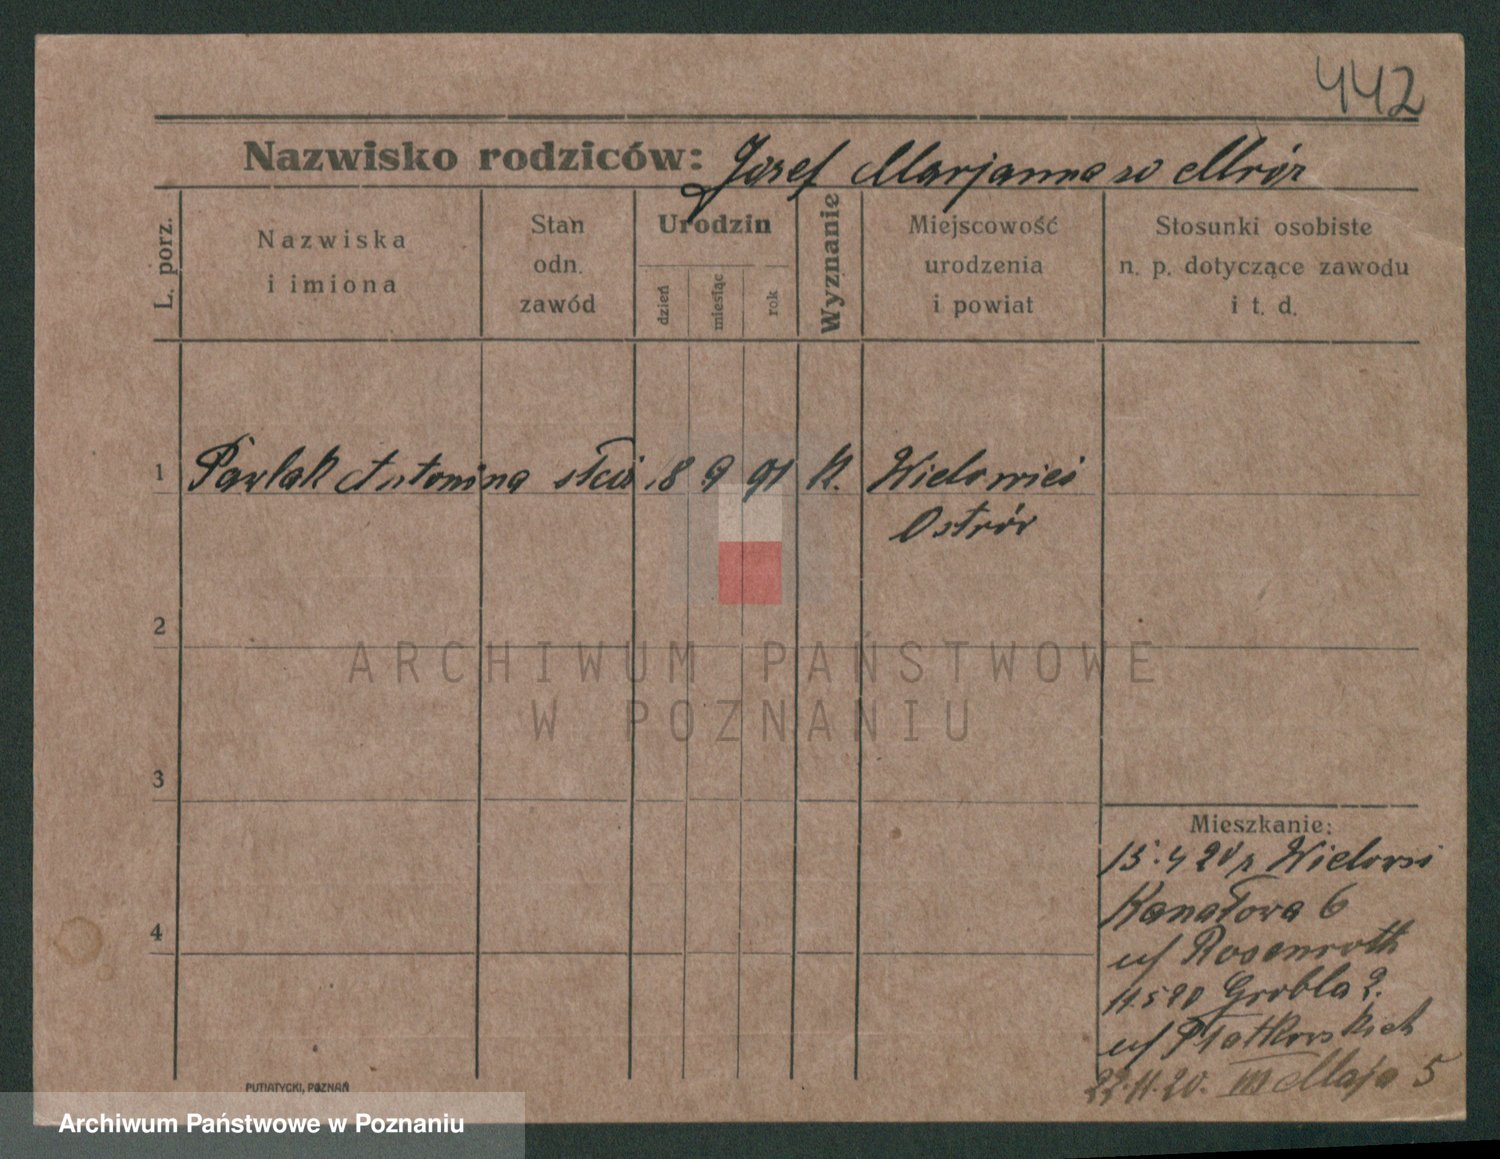 442
Nazwisko rodziców: Józef Marjanna zd Mróz
L. porz.
Nazwiska
i imiona
Stan
odn.
zawód
Urodzin
dzień
miesiąc
rok
Wyznanie
Miejscowość
urodzenia
i powiat
Stosunki osobiste
n. p. dotyczące zawodu
i t. d.
1 Pawlak Antonina 18 9 91 k. Wielowieś
Ostrów
2
ARCHIWUM PAŃSTWOWE
W POZNANIU
3
Mieszkanie:
15.4 20 z Wielowsi
Kanałowa 6
4
u/ Rosenroth
11.5 20 Grobla 2.
u/ Piatkowskich
22.11.20. III Maja 5
PUTIATYCKI, POZNAŃ
Archiwum Państwowe w Poznaniu